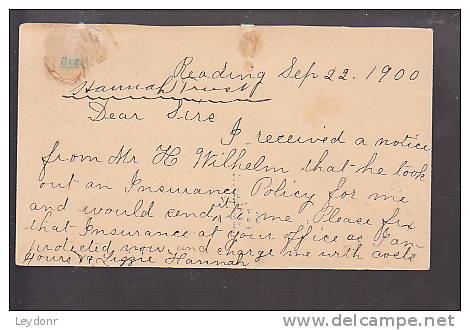 Reading Sep 22. 1900
Hannah Trust
Dear Sirs
I received a notice
from Mr H Wilhelm that he took
out an Insurance Policy for me
and would send it to me Please fix
that Insurance at your office as I am
protected now, and charge me with costs
Yours Lizzie Hannah
Leydonr
©delcampe.net